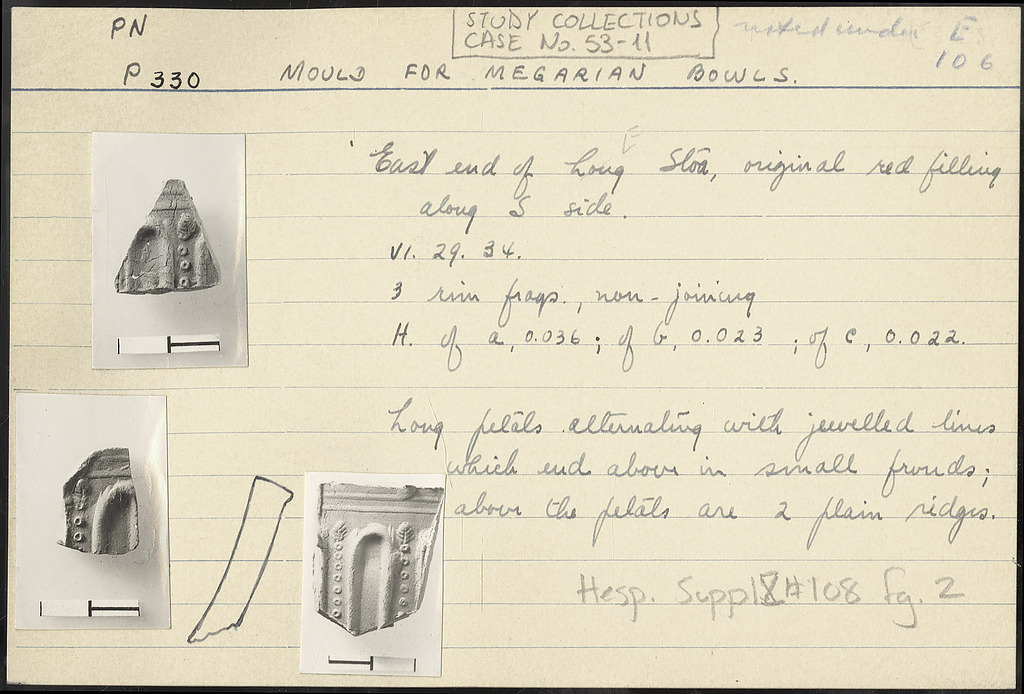 PN
STUDY COLLECTIONS
CASE No. 53-11
noted under E
106
P 330 MOULD FOR MEGARIAN BOWLS.
E
East end of Long Stoa, original red filling
along S side.
VI. 29. 34.
3 rim frags., non-joining
H. of a, 0.036; of b, 0.023; of c, 0.022.
Long petals alternating with jewelled lines
which end above in small fronds;
above the petals are 2 plain ridges.
Hesp. Suppl X #108 fg. 2